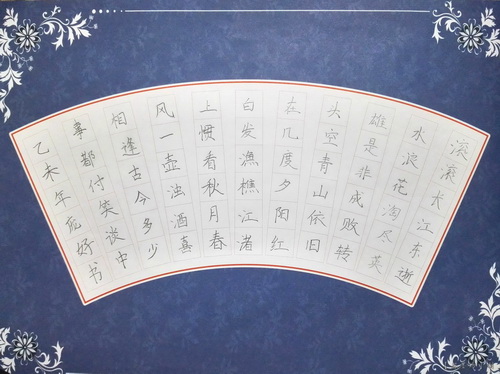 滚滚长江东逝
水浪花淘尽英
雄是非成败转
头空青山依旧
在几度夕阳红
白发漁樵江渚
上惯看秋月春
风一壶浊酒喜
相逢古今多少
事都付笑谈中
乙未年好书